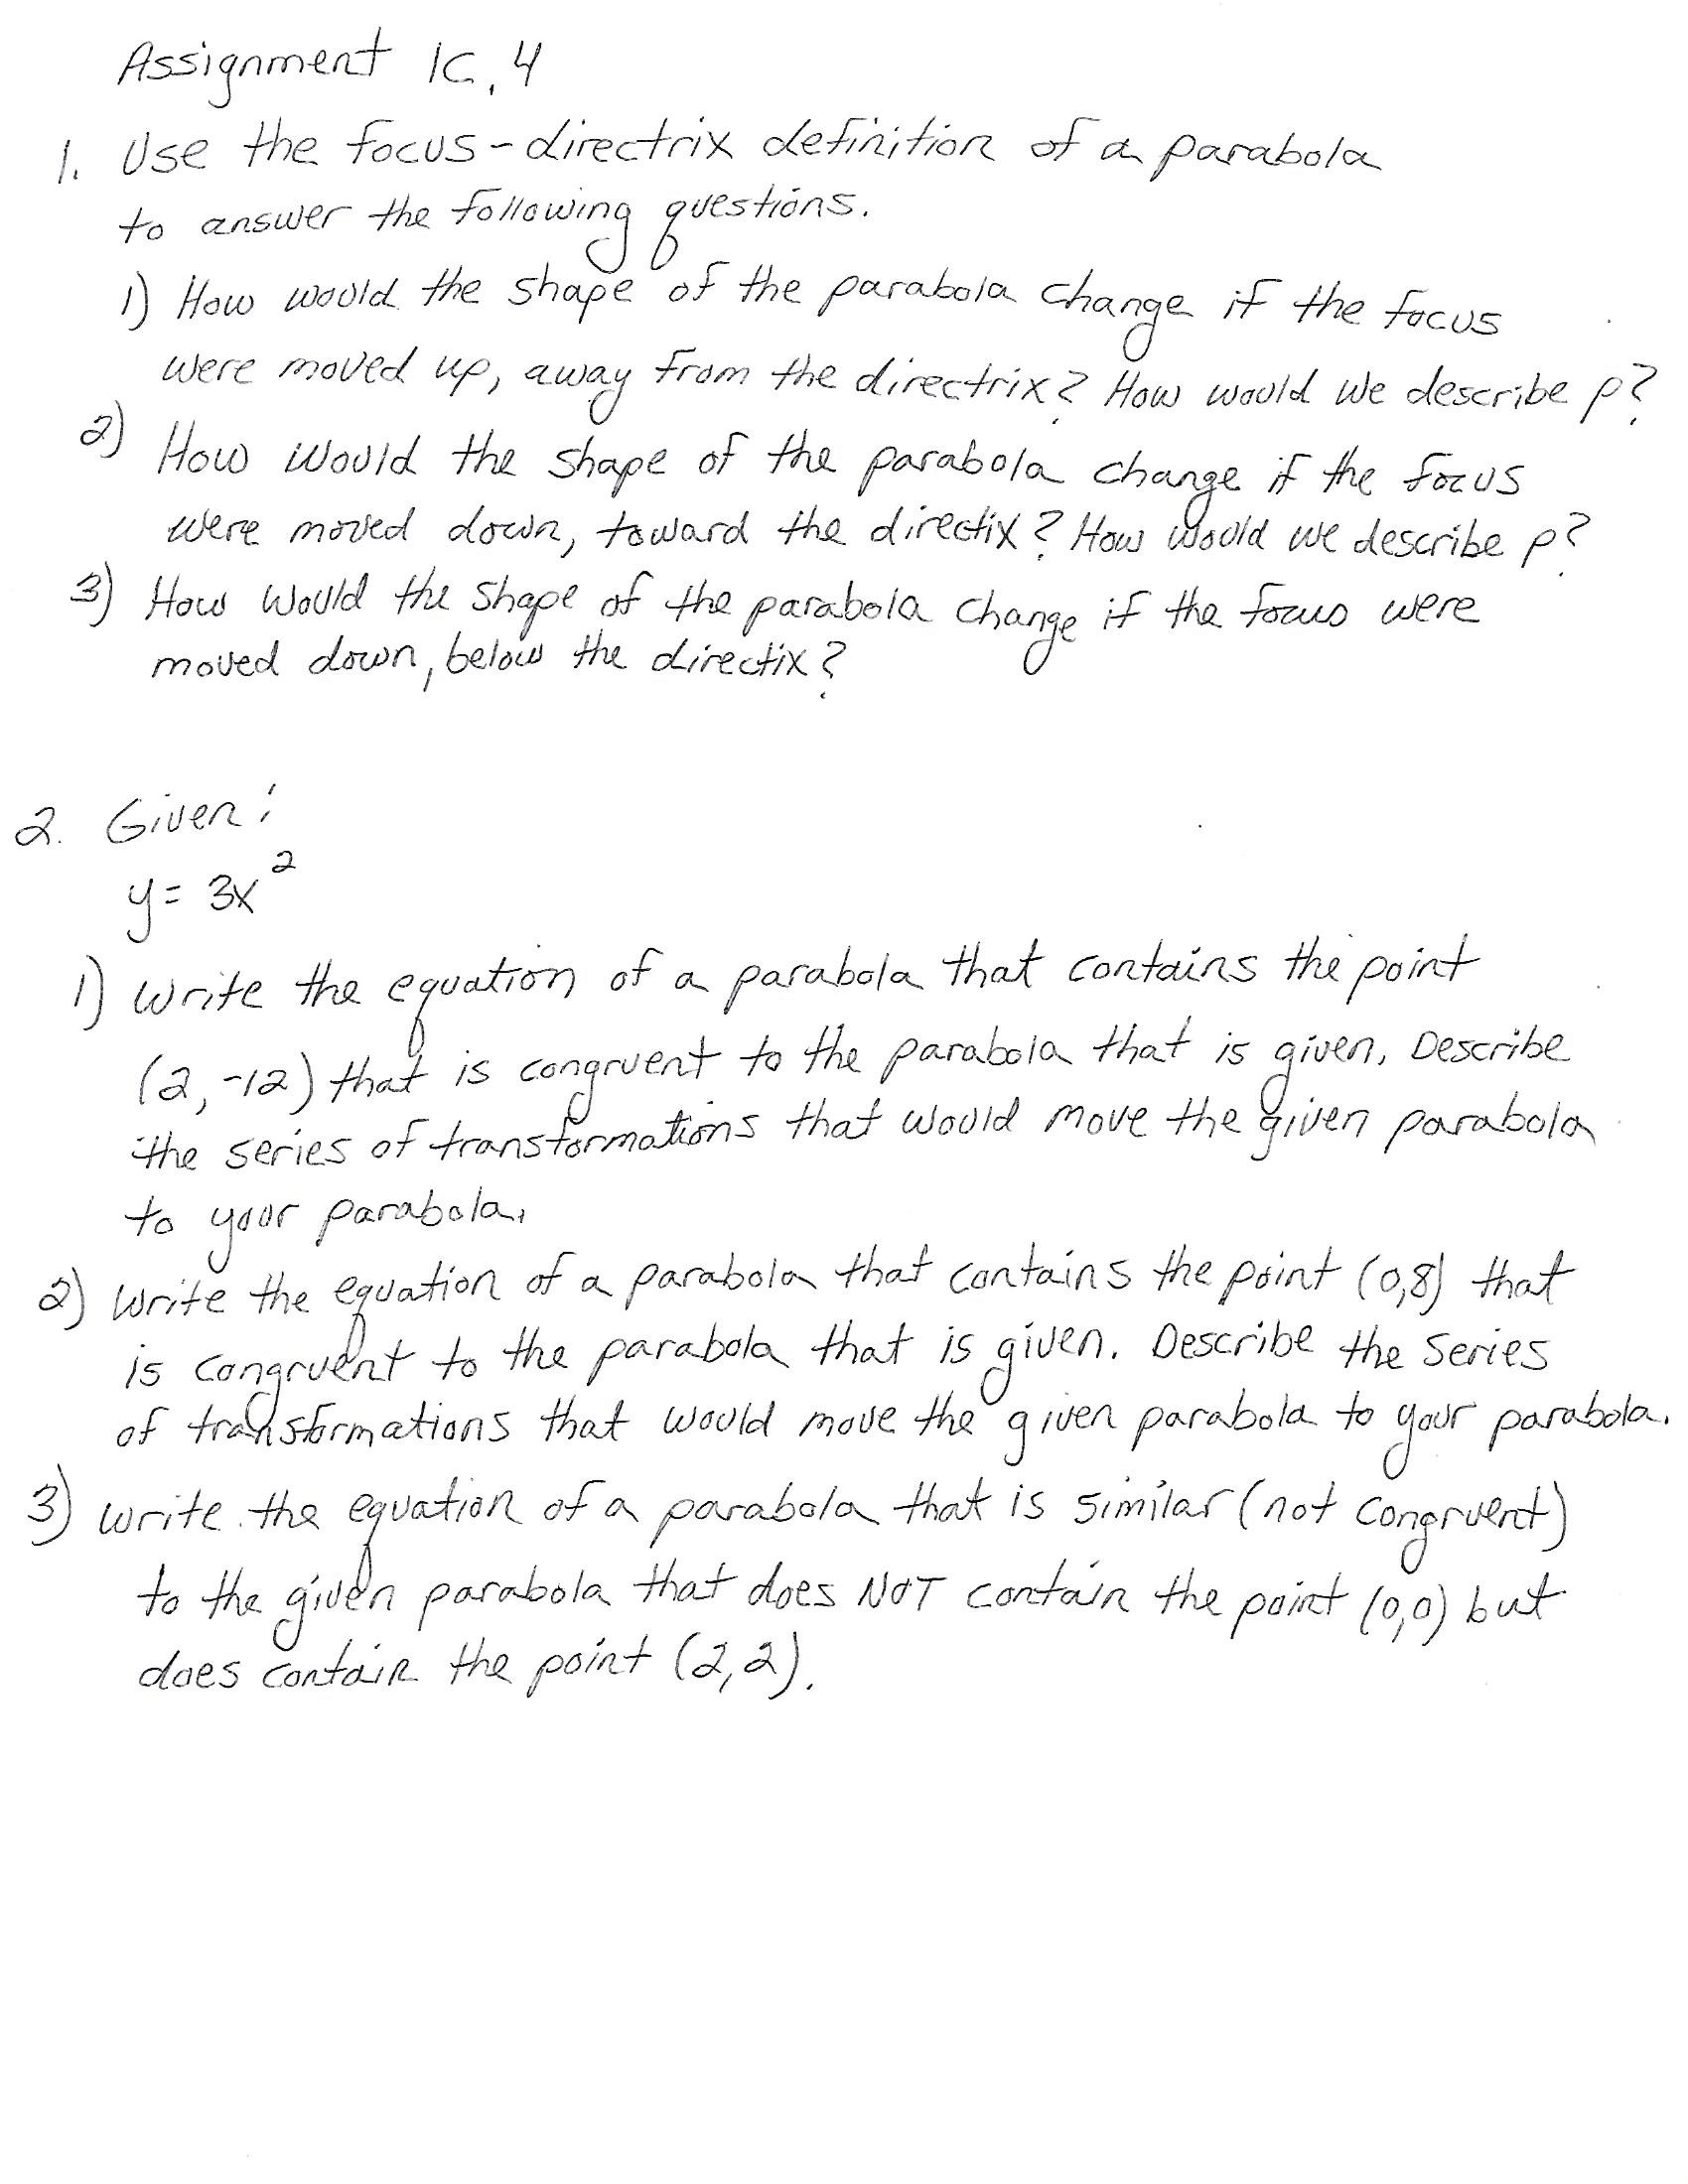 Assignment 1C.4
1. Use the focus-directrix definition of a parabola
to answer the following questions.
1) How would the shape of the parabola change if the focus
were moved up, away from the directrix? How would we describe p?
2) How would the shape of the parabola change if the focus
were moved down, toward the directix? How would we describe p?
3) How would the shape of the parabola change if the focus were
moved down, below the directix?
2. Given:
y = 3x²
1) Write the equation of a parabola that contains the point
(2, -12) that is congruent to the parabola that is given. Describe
the series of transformations that would move the given parabola
to your parabola.
2) Write the equation of a parabola that contains the point (0,8) that
is congruent to the parabola that is given. Describe the series
of transformations that would move the given parabola to your parabola.
3) Write the equation of a parabola that is similar (not congruent)
to the given parabola that does NOT contain the point (0,0) but
does contain the point (2,2).